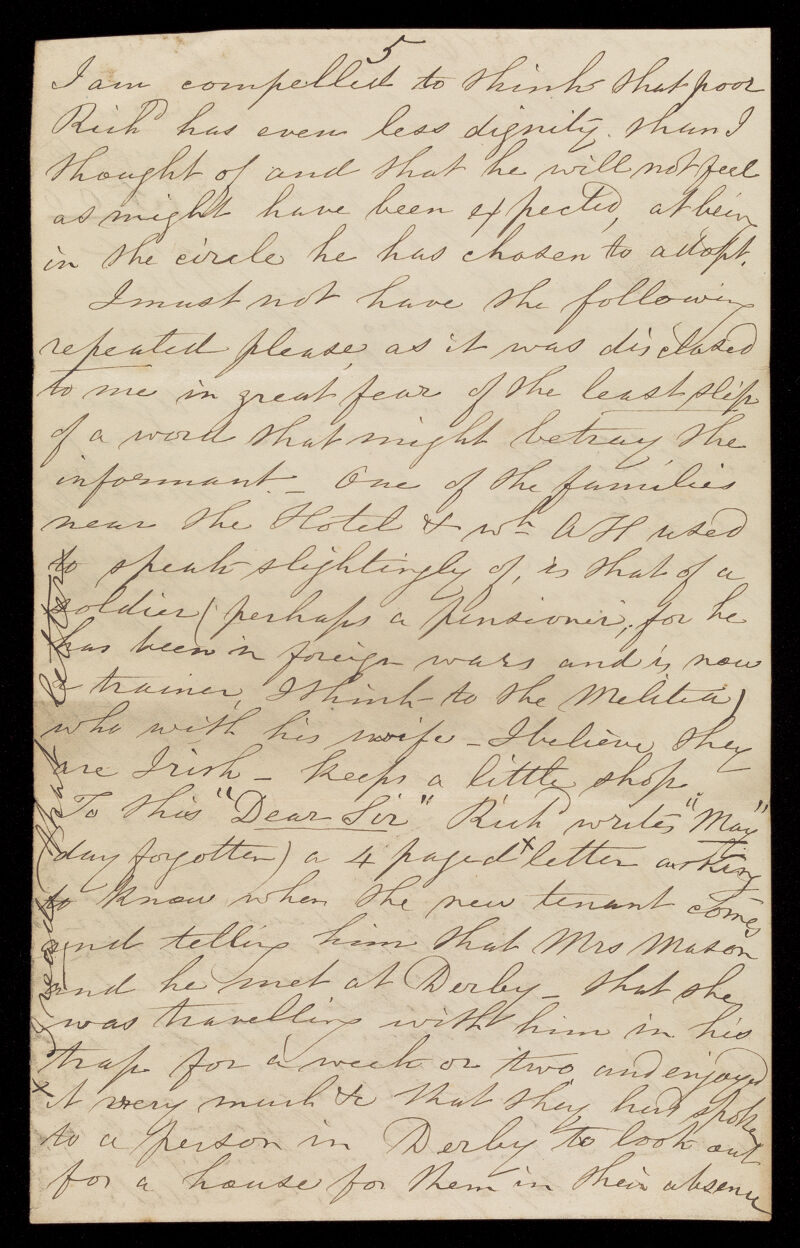 5
I am compelled to think that poor
Rich^d has even less dignity than I
thought of and that he will not feel
as might have been expected, at being
in the circle he has chosen to adopt.
I must not have the following
repeated please, as it was disclosed
to me in great fear of the least slip
of a word that might betray the
informant – One of the families
near the Hotel & wh AH used
to speak slightingly of, is that of a
soldier (perhaps a pensioner, for he
has been in foreign wars and is now
a trainer, I think – to the Melitia)
who with his wife – I believe they
are Irish – keeps a little shop
To this "Dear Sir" Rich^d writes "May"
(day forgotten) a 4 paged x letter asking
to know when the new tenant comes
and telling him that Mrs Mason
and he met at Derby – that she
was travelling with him in his
trap for a week or two and enjoyed
it very much & that they had spoken
to a person in Derby to look out
for a house for them in their absence
x I read that letter